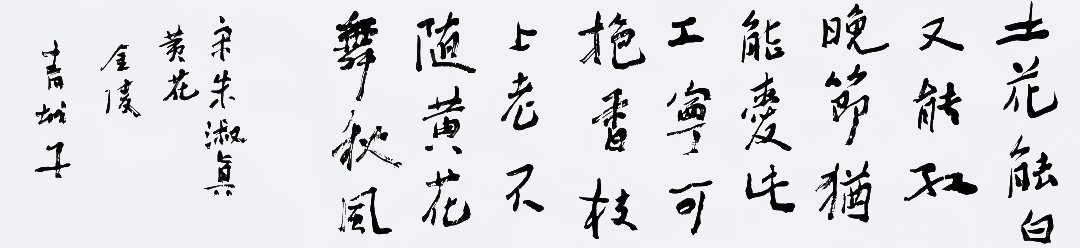 土花能白
又能紅
晚節猶
能愛此
工寧可
抱香枝
上老不
随黄花
舞秋風
宋朱淑真
黄花
金陵
青城子